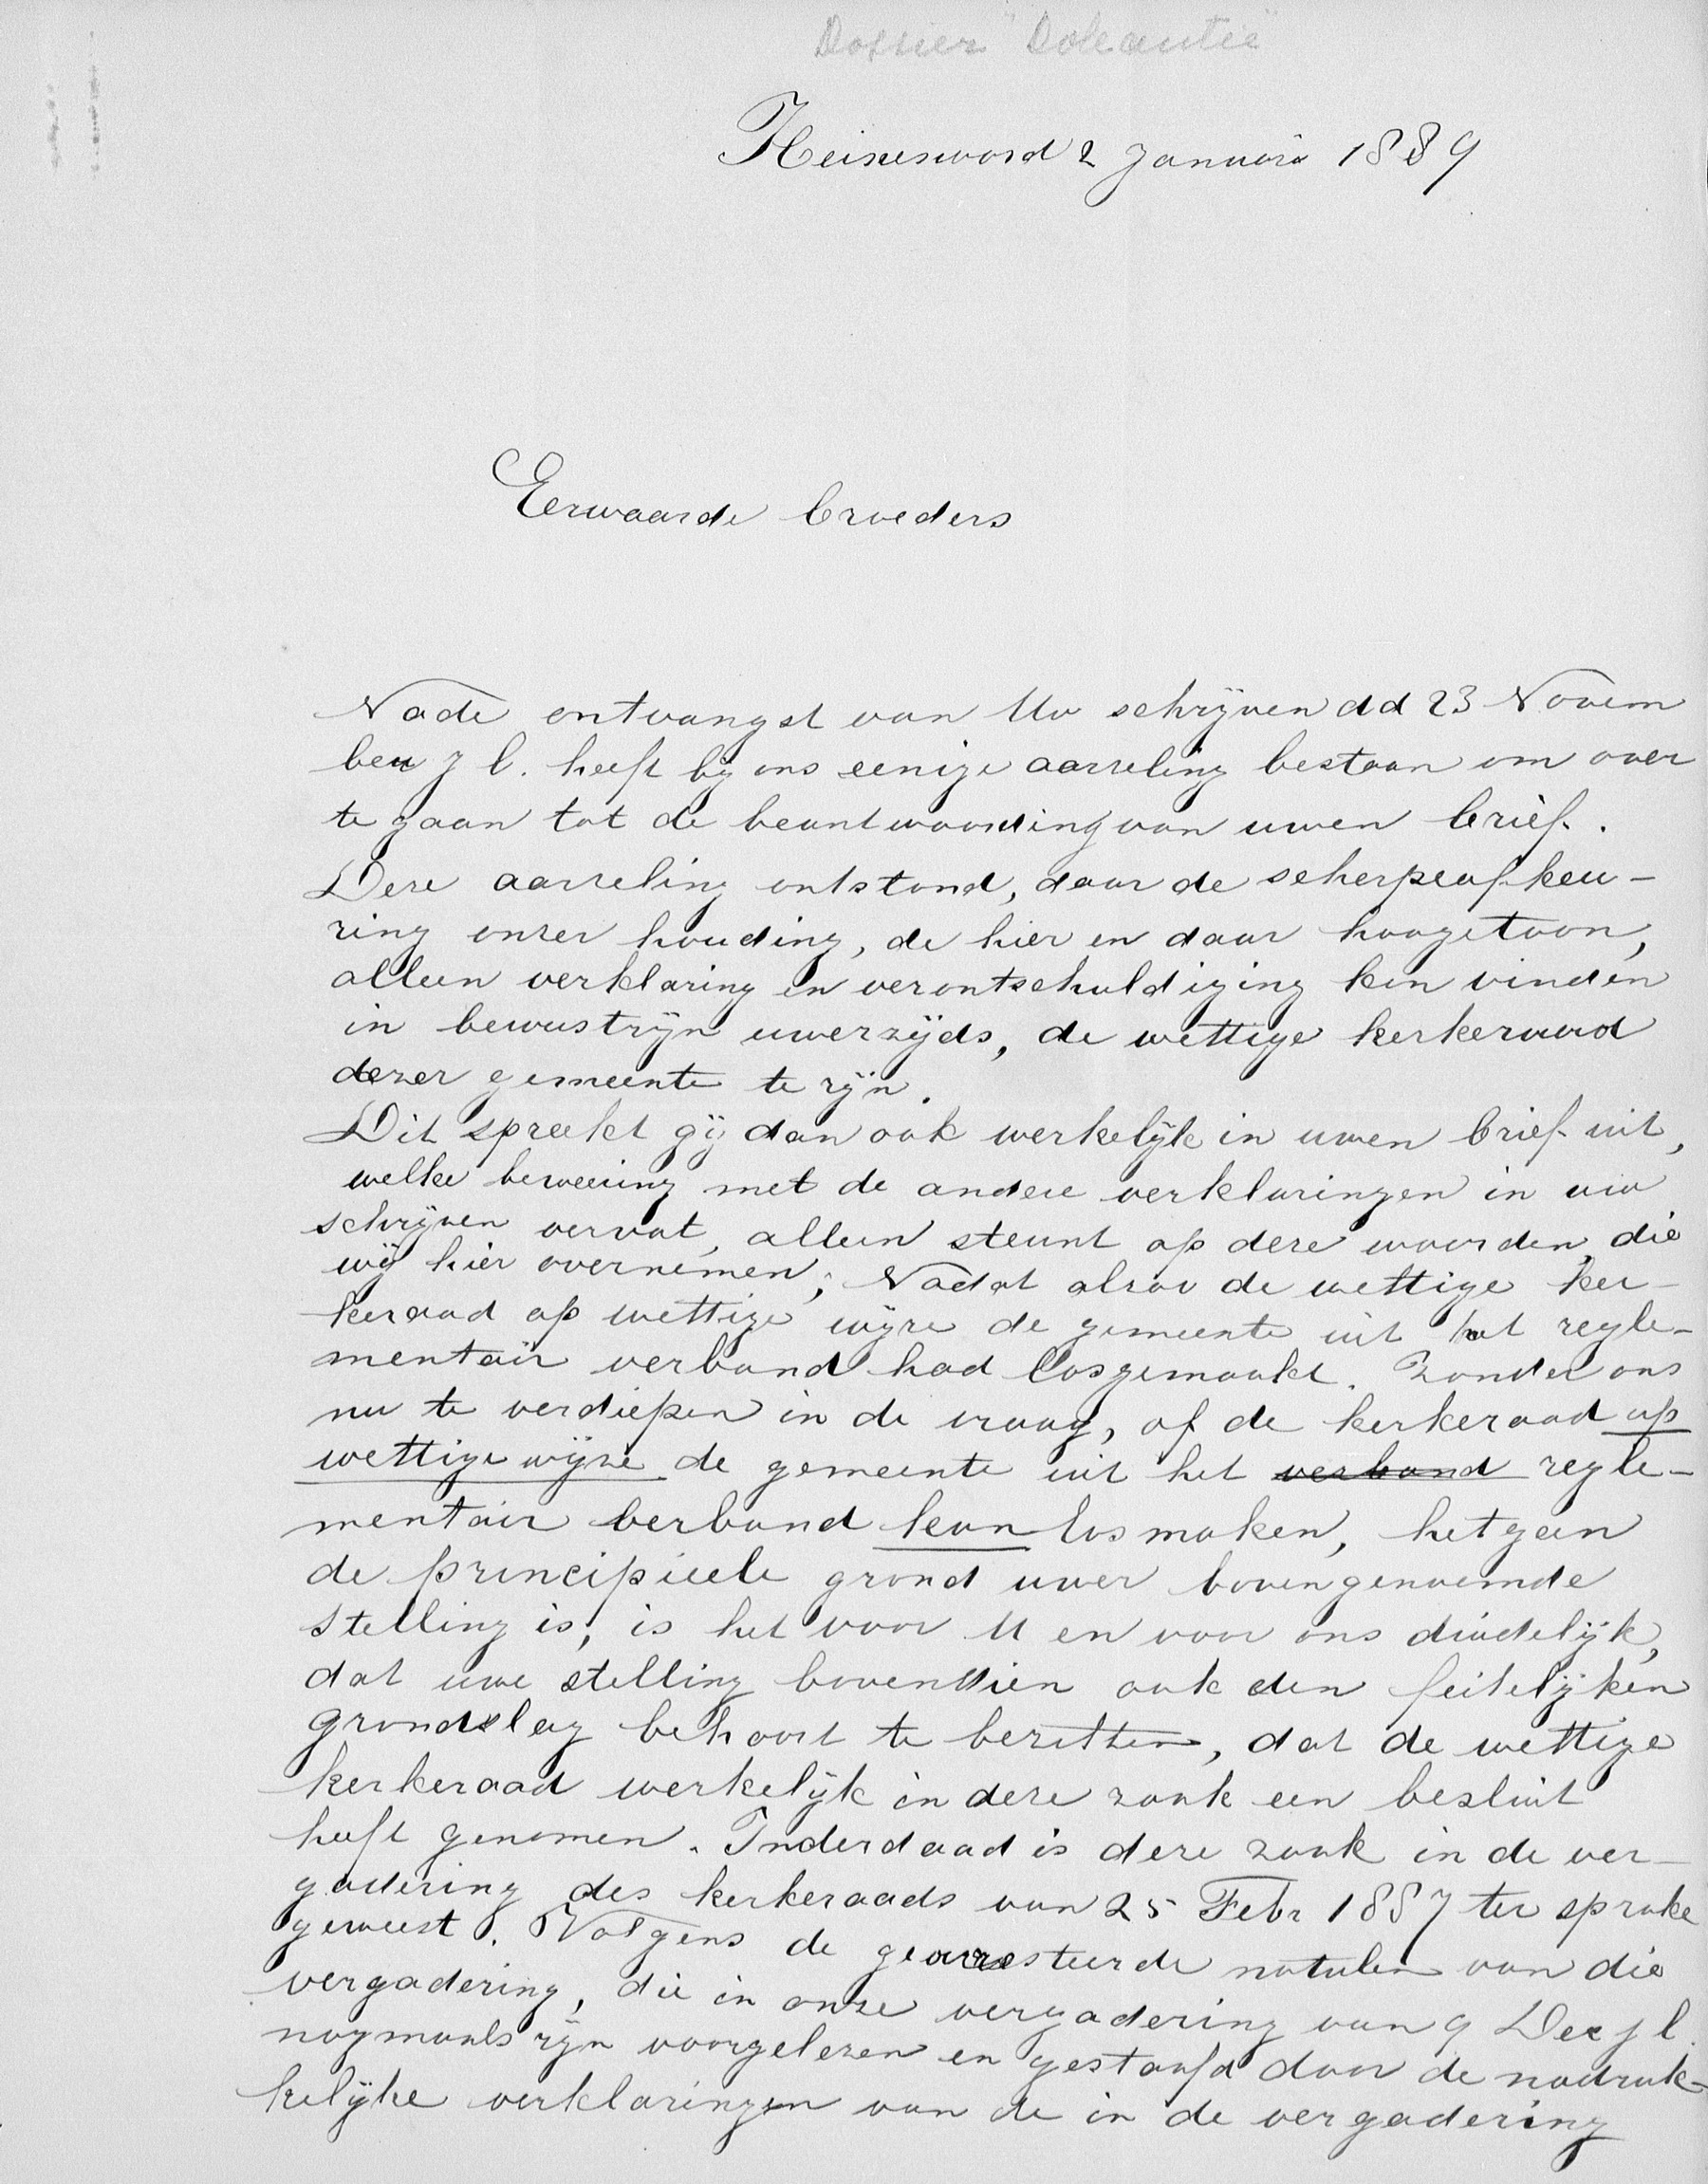 Dossier "Doleantie"
Heinenoord 2 Januari 1889
Eerwaarde broeders
Nade ontvangst van Uw schrijven dd 23 Novem
ber j l. heeft bij ons eenige aarzeling bestaan om over
te gaan tot de beantwoording van uwen brief.
Deze aarzeling ontstond, daar de scherpe afkeu-
ring onzer houding, de hier en daar hooge toon,
alleen verklaring en verontschuldiging kon vinden
in bewustzijn uwerzijds, de wettige kerkeraad
dezer gemeente te zijn.
Dit spreekt gij dan ook werkelijk in uwen brief uit,
welke bewering met de andere verklaringen in uw
schrijven vervat, alleen steunt op deze woorden, die
wij hier overnemen; Nadat alzoo de wettige ker-
keraad op wettige wijze de gemeente uit het regle-
mentair verband had losgemaakt. Zonder ons
nu te verdiepen in de vraag, of de kerkeraad op
wettige wijze de gemeente uit het verband regle-
mentair verband kon los maken, hetgeen
de principieele grond uwer bovengenoemde
stelling is, is het voor U en voor ons duidelijk,
dat uwe stelling bovendien ook den feitelijken
grondslag behoort te bezitten, dat de wettige
kerkeraad werkelijk in deze zaak een besluit
heeft genomen. Inderdaad is deze zaak in de ver-
gadering des kerkeraads van 25 Febr 1887 ter sprake
geweest. Volgens de gearresteerde notulen van die
vergadering, die in onze vergadering van 9 Dec j l.
nogmaals zijn voorgelezen en gestaafd door de nadruk-
kelijke verklaringen van de in de vergadering